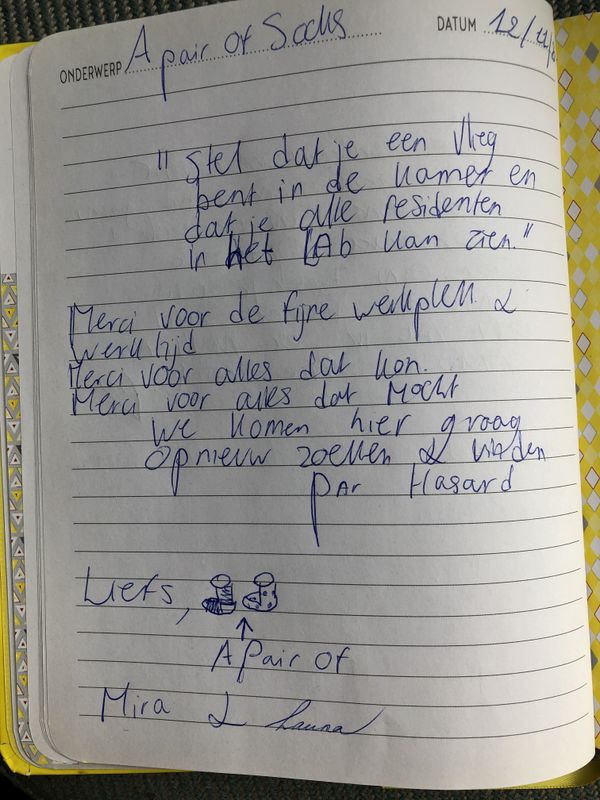 ONDERWERP A pair of Socks DATUM 12/11/
"Stel dat je een vlieg
bent in de kamer en
dat je alle residenten
in het LAb kan zien."
Merci voor de fijne werkplek &
werktijd
Merci voor alles dat kon.
Merci voor alles dat Mocht
We komen hier graag
Opnieuw zoeken & vinden
PAr Hasard
Liefs,
A Pair Of
Mira & Launa